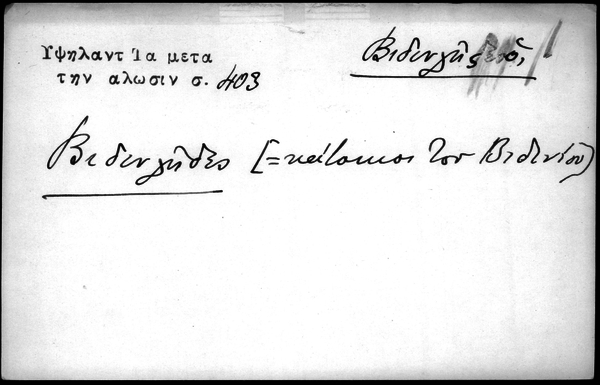 Υψηλαντ Ἰα μετα
την αλωσιν σ. 403
Βιδενλῆς
Βιδενλῆδες (=κάτοικοι του Βιδινίου)